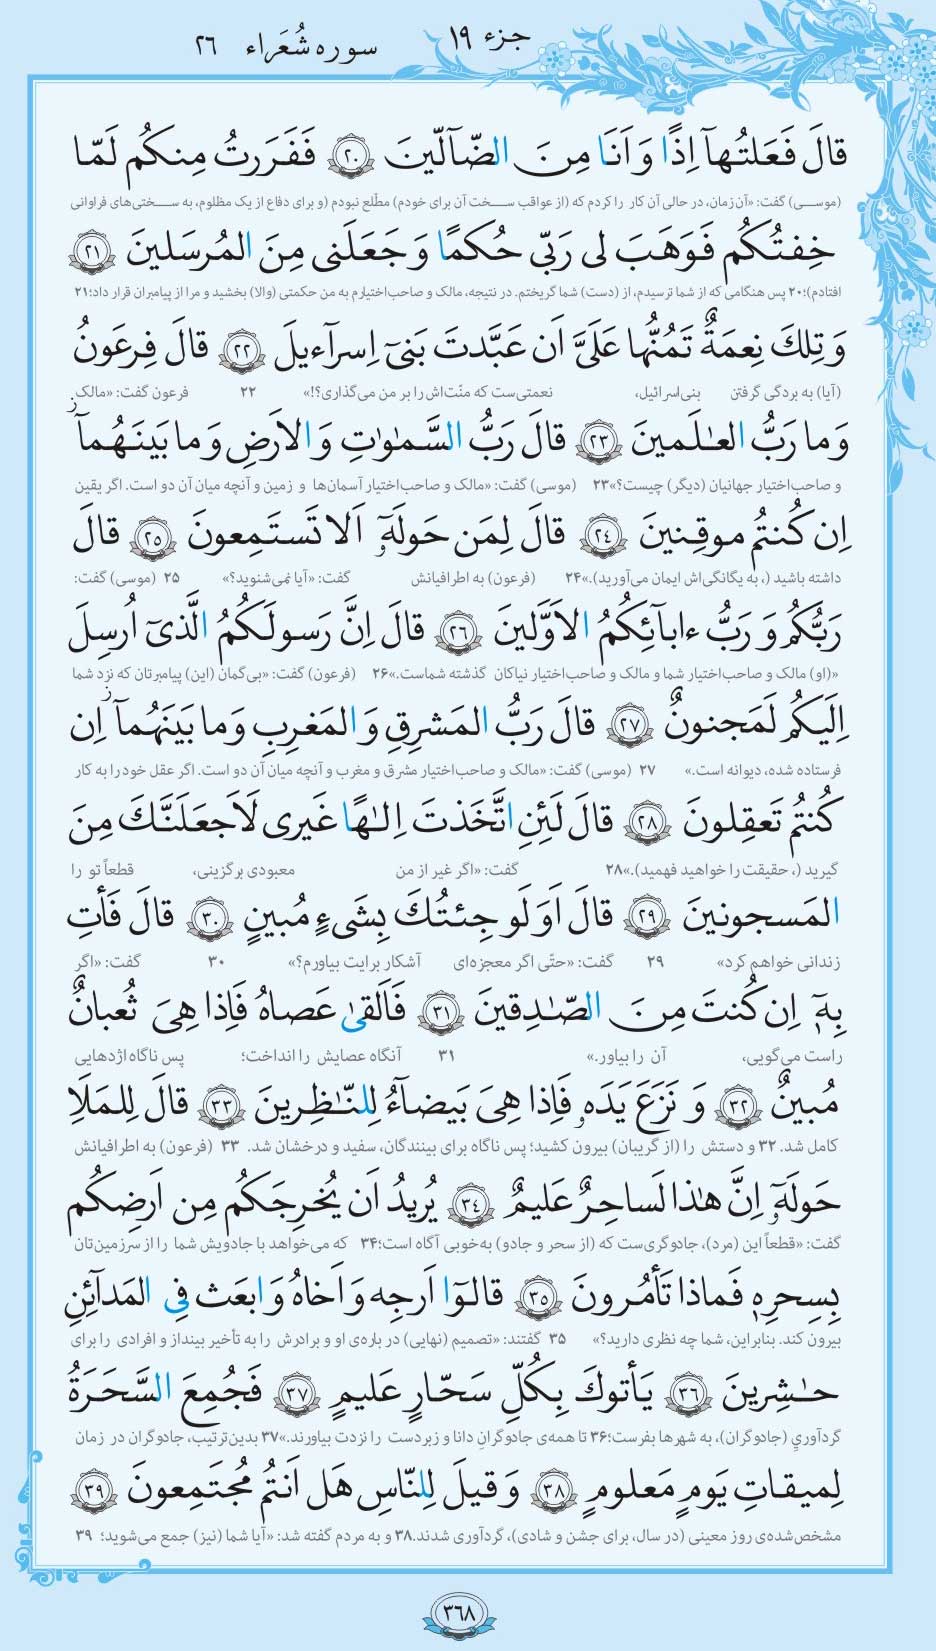 جزء ۱۹ سوره شُعَراء ۲۶
قالَ فَعَلتُهآ اِذًا وَ اَنَا مِنَ الضّآلّينَ ﴿۲۰﴾ فَفَرَرتُ مِنكُم لَمّا
(موسی) گفت: «آن زمان، در حالی آن کار را کردم که (از عواقب سخت آن برای خودم) مطّلع نبودم (و برای دفاع از یک مظلوم، به سختی‌های فراوانی
خِفتُكُم فَوَهَبَ لى رَبّى حُكمًا وَ جَعَلَنى مِنَ المُرسَلينَ ﴿۲۱﴾
افتادم)؛۲۰ پس هنگامی که از شما ترسیدم، از (دست) شما گریختم. در نتیجه، مالک و صاحب‌اختیارم به من حکمتی (والا) بخشید و مرا از پیامبران قرار داد؛۲۱
وَ تِلكَ نِعمَةٌ تَمُنُّها عَلَىَّ اَن عَبَّدتَ بَنىٓ اِسرآءيلَ ﴿۲۲﴾ قالَ فِرعَونُ
(آیا) به بردگی گرفتن بنی‌اسرائیل، نعمتی‌ست که منّت‌اش را بر من می‌گذاری؟!» ۲۲ فرعون گفت: «مالک
وَ ما رَبُّ العٰلَمينَ ﴿۲۳﴾ قالَ رَبُّ السَّمٰوٰتِ وَ الاَرضِ وَ ما بَينَهُمآ ز
و صاحب‌اختیار جهانیان (دیگر) چیست؟»۲۳ (موسی) گفت: «مالک و صاحب‌اختیار آسمان‌ها و زمین و آنچه میان آن دو است. اگر یقین
اِن كُنتُم موقِنينَ ﴿۲۴﴾ قالَ لِمَن حَولَهٓ اَلا تَستَمِعونَ ﴿۲۵﴾ قالَ
داشته باشید (، به یگانگی‌اش ایمان می‌آورید).»۲۴ (فرعون) به اطرافیانش گفت: «آیا نمی‌شنوید؟» ۲۵ (موسی) گفت:
رَبُّكُم وَ رَبُّ ءابآئِكُمُ الاَوَّلينَ ﴿۲۶﴾ قالَ اِنَّ رَسولَكُمُ الَّذىٓ اُرسِلَ
«(او) مالک و صاحب‌اختیار شما و مالک و صاحب‌اختیار نیاکان گذشته شماست.»۲۶ (فرعون) گفت: «بی‌گمان (این) پیامبرتان که نزد شما
اِلَيكُم لَمَجنونٌ ﴿۲۷﴾ قالَ رَبُّ المَشرِقِ وَ المَغرِبِ وَ ما بَينَهُمآ ز اِن
فرستاده شده، دیوانه است.» ۲۷ (موسی) گفت: «مالک و صاحب‌اختیار مشرق و مغرب و آنچه میان آن دو است. اگر عقل خود را به کار
كُنتُم تَعقِلونَ ﴿۲۸﴾ قالَ لَئِنِ اتَّخَذتَ اِلٰهًا غَيرى لَاَجعَلَنَّكَ مِنَ
گیرید (، حقیقت را خواهید فهمید).»۲۸ گفت: «اگر غیر از من معبودی برگزینی، قطعاً تو را
المَسجونينَ ﴿۲۹﴾ قالَ اَوَ لَو جِئتُكَ بِشَىءٍ مُبينٍ ﴿۳۰﴾ قالَ فَأتِ
زندانی خواهم کرد» ۲۹ گفت: «حتّی اگر معجزه‌ای آشکار برایت بیاورم؟» ۳۰ گفت: «اگر
بِهٓ اِن كُنتَ مِنَ الصّٰدِقينَ ﴿۳۱﴾ فَاَلقىٰ عَصاهُ فَاِذا هِىَ ثُعبانٌ
راست می‌گویی، آن را بیاور.» ۳۱ آنگاه عصایش را انداخت؛ پس ناگاه اژدهایی
مُبينٌ ﴿۳۲﴾ وَ نَزَعَ يَدَهٗ فَاِذا هِىَ بَيضآءُ لِلنّٰظِرينَ ﴿۳۳﴾ قالَ لِلمَلَاِ
کامل شد. ۳۲ و دستش را (از گریبان) بیرون کشید؛ پس ناگاه برای بینندگان، سفید و درخشان شد. ۳۳ (فرعون) به اطرافیانش
حَولَهٓ اِنَّ هٰذا لَساحِرٌ عَليمٌ ﴿۳۴﴾ يُريدُ اَن يُخرِجَكُم مِن اَرضِكُم
گفت: «قطعاً این (مرد)، جادوگری‌ست که (از سحر و جادو) به‌خوبی آگاه است؛۳۴ که می‌خواهد با جادویش شما را از سرزمین‌تان
بِسِحرِهٖ فَماذا تَأمُرونَ ﴿۳۵﴾ قالوٓا اَرجِه وَ اَخاهُ وَ ابعَث فِى المَدآئِنِ
بیرون کند. بنابراین، شما چه نظری دارید؟» ۳۵ گفتند: «تصمیم (نهایی) درباره‌ی او و برادرش را به تأخیر بینداز و افرادی را برای
حٰشِرينَ ﴿۳۶﴾ يَأتوكَ بِكُلِّ سَحّارٍ عَليمٍ ﴿۳۷﴾ فَجُمِعَ السَّحَرَةُ
گردآوریِ (جادوگران)، به شهرها بفرست؛۳۶ تا همه‌ی جادوگرانِ دانا و زبردست را نزدت بیاورند.»۳۷ بدین‌ترتیب، جادوگران در زمان
لِميقاتِ يَومٍ مَعلومٍ ﴿۳۸﴾ وَ قيلَ لِلنّاسِ هَل اَنتُم مُجتَمِعونَ ﴿۳۹﴾
مشخص‌شده‌ی روز معینی (در سال، برای جشن و شادی)، گردآوری شدند.۳۸ و به مردم گفته شد: «آیا شما (نیز) جمع می‌شوید؛ ۳۹
۳۶۸